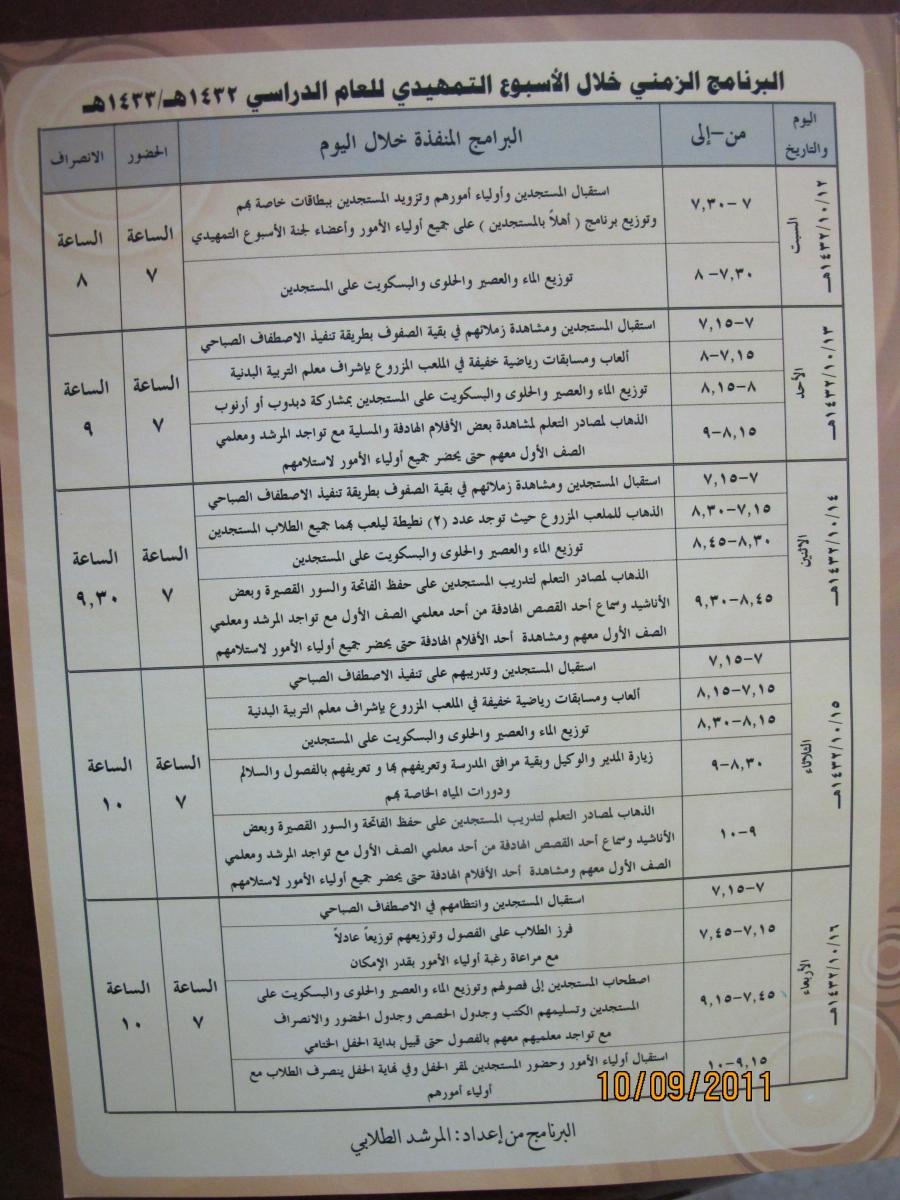 البرنامج الزمني خلال الأسبوع التمهيدي للعام الدراسي ١٤٣٢هـ/١٤٣٣هـ
اليوم والتاريخ
من-إلى
البرامج المنفذة خلال اليوم
الحضور
الانصراف
السبت
١٤٣٢/١٠/١٢هـ
٧-٧,٣٠
استقبال المستجدين وأولياء أمورهم وتزويد المستجدين ببطاقات خاصة بهم
وتوزيع برنامج ( أهلاً بالمستجدين ) على جميع أولياء الأمور وأعضاء لجنة الأسبوع التمهيدي
٧,٣٠-٨
توزيع الماء والعصير والحلوى والبسكويت على المستجدين
الساعة
٧
الساعة
٨
الأحد
١٤٣٢/١٠/١٣هـ
٧-٧,١٥
استقبال المستجدين ومشاهدة زملائهم في بقية الصفوف بطريقة تنفيذ الاصطفاف الصباحي
٧,١٥-٨
ألعاب ومسابقات رياضية خفيفة في الملعب المزروع بإشراف معلم التربية البدنية
٨-٨,١٥
توزيع الماء والعصير والحلوى والبسكويت على المستجدين بمشاركة دبدوب أو أرنوب
٨,١٥-٩
الذهاب لمصادر التعلم لمشاهدة بعض الأفلام الهادفة والمسلية مع تواجد المرشد ومعلمي
الصف الأول معهم حتى يحضر جميع أولياء الأمور لاستلامهم
الساعة
٧
الساعة
٩
الاثنين
١٤٣٢/١٠/١٤هـ
٧-٧,١٥
استقبال المستجدين ومشاهدة زملائهم في بقية الصفوف بطريقة تنفيذ الاصطفاف الصباحي
٧,١٥-٨,٣٠
الذهاب للملعب المزروع حيث توجد عدد (٢) نطيطة ليلعب بهما جميع الطلاب المستجدين
٨,٣٠-٨,٤٥
توزيع الماء والعصير والحلوى والبسكويت على المستجدين
٨,٤٥-٩,٣٠
الذهاب لمصادر التعلم لتدريب المستجدين على حفظ الفاتحة والسور القصيرة وبعض
الأناشيد وسماع أحد القصص الهادفة من أحد معلمي الصف الأول مع تواجد المرشد ومعلمي
الصف الأول معهم ومشاهدة أحد الأفلام الهادفة حتى يحضر جميع أولياء الأمور لاستلامهم
الساعة
٧
الساعة
٩,٣٠
الثلاثاء
١٤٣٢/١٠/١٥هـ
٧-٧,١٥
استقبال المستجدين وتدريبهم على تنفيذ الاصطفاف الصباحي
٧,١٥-٨,١٥
ألعاب ومسابقات رياضية خفيفة في الملعب المزروع بإشراف معلم التربية البدنية
٨,١٥-٨,٣٠
توزيع الماء والعصير والحلوى والبسكويت على المستجدين
٨,٣٠-٩
زيارة المدير والوكيل وبقية مرافق المدرسة وتعريفهم بها و تعريفهم بالفصول والسلالم
ودورات المياه الخاصة بهم
٩-١٠
الذهاب لمصادر التعلم لتدريب المستجدين على حفظ الفاتحة والسور القصيرة وبعض
الأناشيد وسماع أحد القصص الهادفة من أحد معلمي الصف الأول مع تواجد المرشد ومعلمي
الصف الأول معهم ومشاهدة أحد الأفلام الهادفة حتى يحضر جميع أولياء الأمور لاستلامهم
الساعة
٧
الساعة
١٠
الأربعاء
١٤٣٢/١٠/١٦هـ
٧-٧,١٥
استقبال المستجدين وانتظامهم في الاصطفاف الصباحي
٧,١٥-٧,٤٥
فرز الطلاب على الفصول وتوزيعهم توزيعاً عادلاً
مع مراعاة رغبة أولياء الأمور بقدر الإمكان
٧,٤٥-٩,١٥
اصطحاب المستجدين إلى فصولهم وتوزيع الماء والعصير والحلوى والبسكويت على
المستجدين وتسليمهم الكتب وجدول الحصص وجدول الحضور والانصراف
مع تواجد معلميهم معهم بالفصول حتى قبيل بداية الحفل الختامي
٩,١٥-١٠
استقبال أولياء الأمور وحضور المستجدين لمقر الحفل وفي نهاية الحفل ينصرف الطلاب مع
أولياء أمورهم
الساعة
٧
الساعة
١٠
10/09/2011
البرنامج من إعداد: المرشد الطلابي